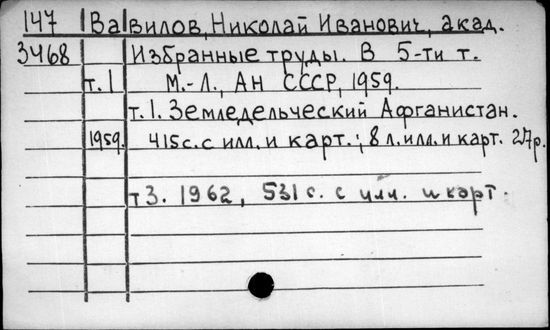 147 Вавилов, Николай Иванович, акад.
3468 Избранные труды. В 5-ти т.
т. 1 М.-Л., Ан СССР, 1959.
т. 1. Земледельческий Афганистан.
1959. 415 с. с илл. и карт.; 8 л. илл. и карт. 27р.
т 3. 1962, 531 с. с илл. и карт.